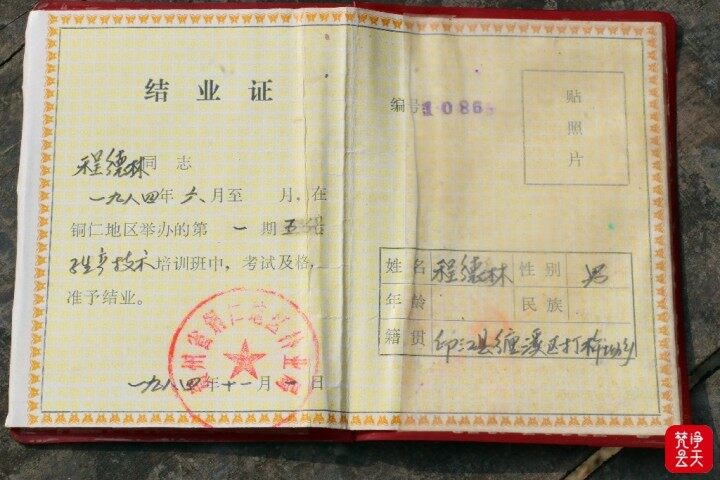 结业证
程德林同志
一九八四年六月至 月,在
铜仁地区举办的第一期五
生产技术培训班中,考试及格,
准予结业。
贵州省铜仁地区林业局
一九八四年十一月一日
编号 1086
贴照片
姓名 程德林 性别 男
年龄 民族
籍贯 印江县缠溪区打杵坳乡
梵净云天